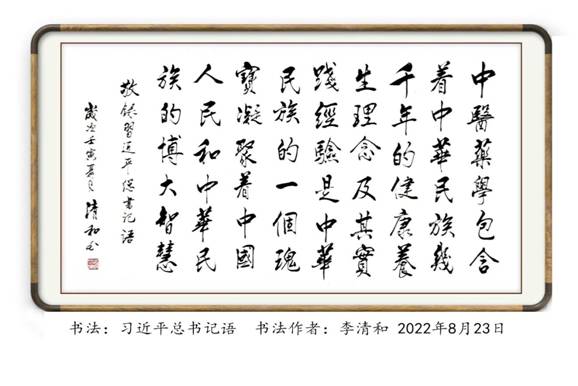 中醫藥學包含
着中華民族幾
千年的健康養
生理念及其實
踐經驗是中華
民族的一個瑰
寶凝聚着中國
人民和中華民
族的博大智慧
敬錄習近平總書記語
歲次壬寅夏月清和書
书法：习近平总书记语 书法作者：李清和 2022年8月23日